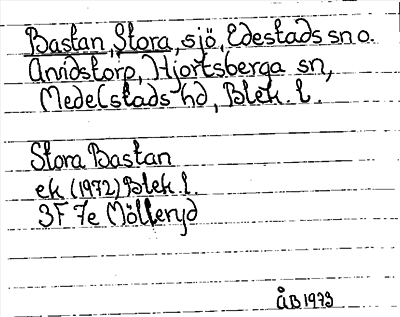 Bastan, Stora, sjö, Edestads sn o.
Arvidstorp, Hjortsberga sn,
Medelstads hd, Blek. l.
Stora Bastan
ek (1972) Blek l.
3F 7e Mölleryd
ÅB 1973